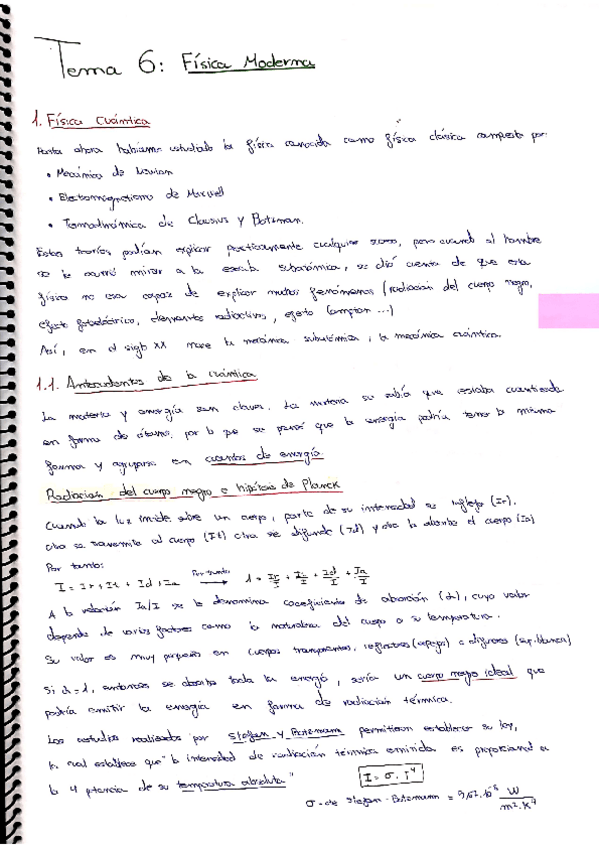 Tema 6: Física Moderna
1. Física Cuántica
Hasta ahora habíamos estudiado la física conocida como física clásica compuesta por:
• Mecánica de Newton
• Electromagnetismo de Maxwell
• Termodinámica de Clausius y Boltzman.
Estas teorías podían explicar practicamente cualquier cosa, pero cuando al hombre
se le ocurrió mirar a la escala subatómica, se dió cuenta de que esta
física no era capaz de explicar muchos fenómenos (radiación del cuerpo negro,
efecto fotoeléctrico, elementos radiactivos, efecto Compton ...)
Así, en el siglo XX nace la mecánica subatómica, la mecánica cuántica.
1.1. Antecedentes de la cuántica
La materia y energía son claves. La materia se sabía que estaba cuantizada
en forma de átomos, por lo que se pensó que la energía podría tener la misma
forma y agruparse en cuantos de energía.
Radiación del cuerpo negro e hipótesis de Planck
Cuando la luz incide sobre un cuerpo, parte de su intensidad se refleja (Ir),
otra se transmite al cuerpo (It) otra se difunde (Id) y otra la absorbe el cuerpo (Ia)
Por tanto:
I = Ir + It + Id + Ia Por tanto → 1 = Ir/I + It/I + Id/I + Ia/I
A la relación Ia/I se la denomina coeficiente de absorción (α), cuyo valor
depende de varios factores como la naturaleza del cuerpo o su temperatura.
Su valor es muy pequeño en cuerpos transparentes, reflectores (espejo) o difusores (sup. blanca)
Si α = 1, entonces se absorbe toda la energía, sería un cuerpo negro ideal que
podría emitir la energía en forma de radiación térmica.
Los estudios realizados por Stefan y Boltzmann permitieron establecer su ley,
la cual establece que "la intensidad de radiación térmica emitida es proporcional a
la 4 potencia de su temperatura absoluta"
I = σ · T⁴
σ - de Stefan-Boltzmann = W/m²·K⁴